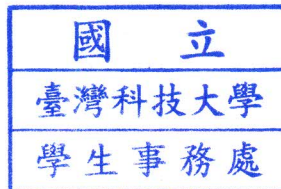 國立
臺灣科技大學
學生事務處